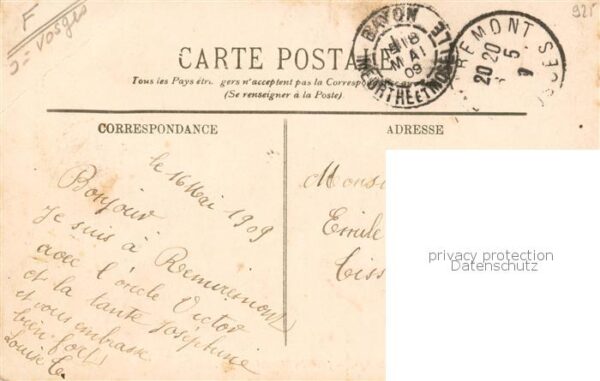 F
Vosges
925
CARTE POSTALE
Tous les Pays étr gers n'acceptent pas la Correspon
(Se renseigner à la Poste)
BAYON
18
MAI
09
MEURTHE ET MOSELLE
REMONT
20 20
5
CORRESPONDANCE
ADRESSE
le 16 Mai 1909
Bonjour
Je suis à Remiremont
avec l'oncle Victor
et la tante Joséphine
et vous embrasse
bien fort
Louise C.
Monsi
Emile
Tiss
privacy protection
Datenschutz